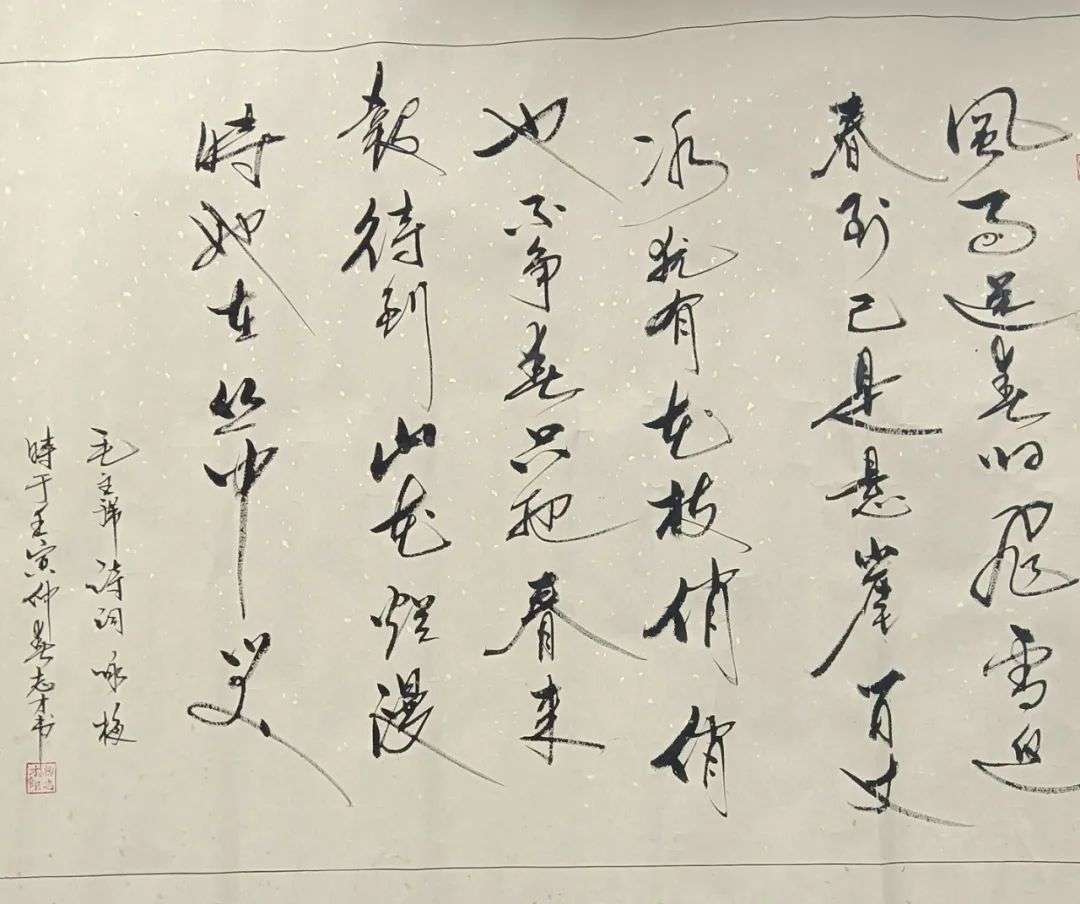 風雨送春归飛雪迎
春到已是悬崖百丈
冰犹有花枝俏俏
也不争春只把春来
報待到山花爛漫
時她在丛中笑
毛主席诗词咏梅
時于壬寅仲春志才书